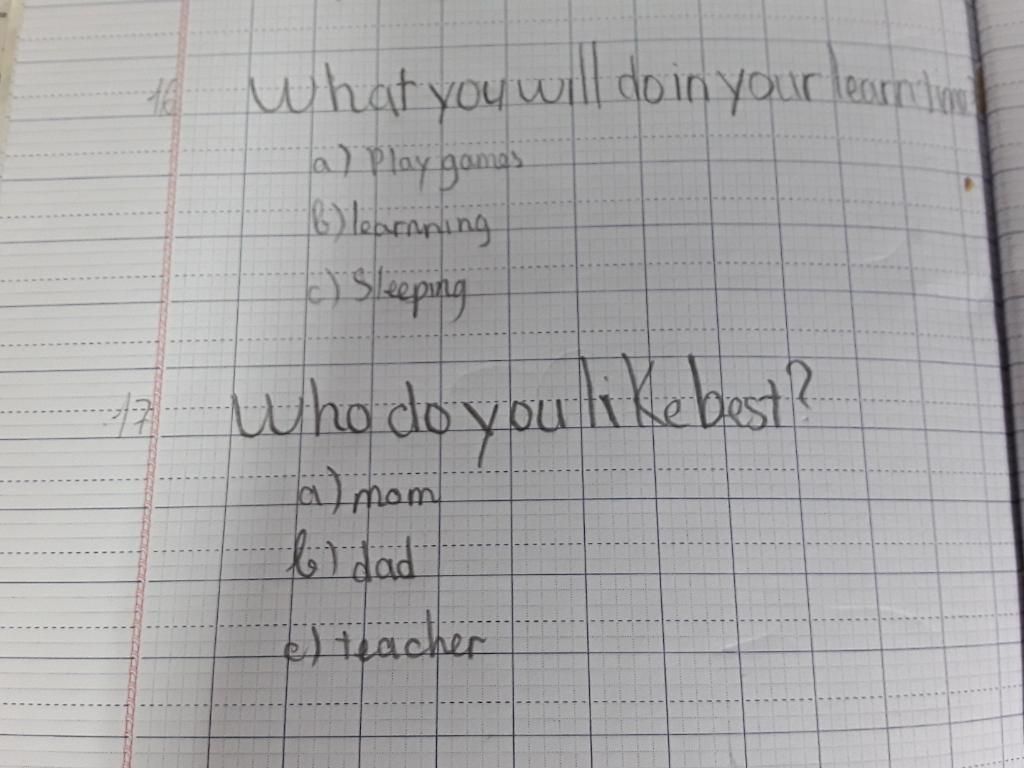 16 What you will do in your learn
a) Play games
b) learnning
c) Sleeping
17 Who do you like best?
a) mom
b) dad
c) teacher